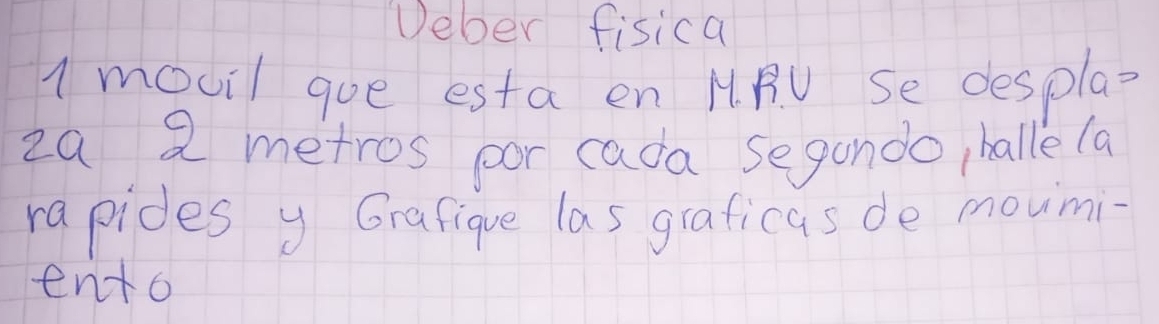 Deber fisica
1 movil que esta en M.R.U se despla-
za 2 metros por cada segundo, halle la
rapides y Grafique las graficas de movimi-
ento